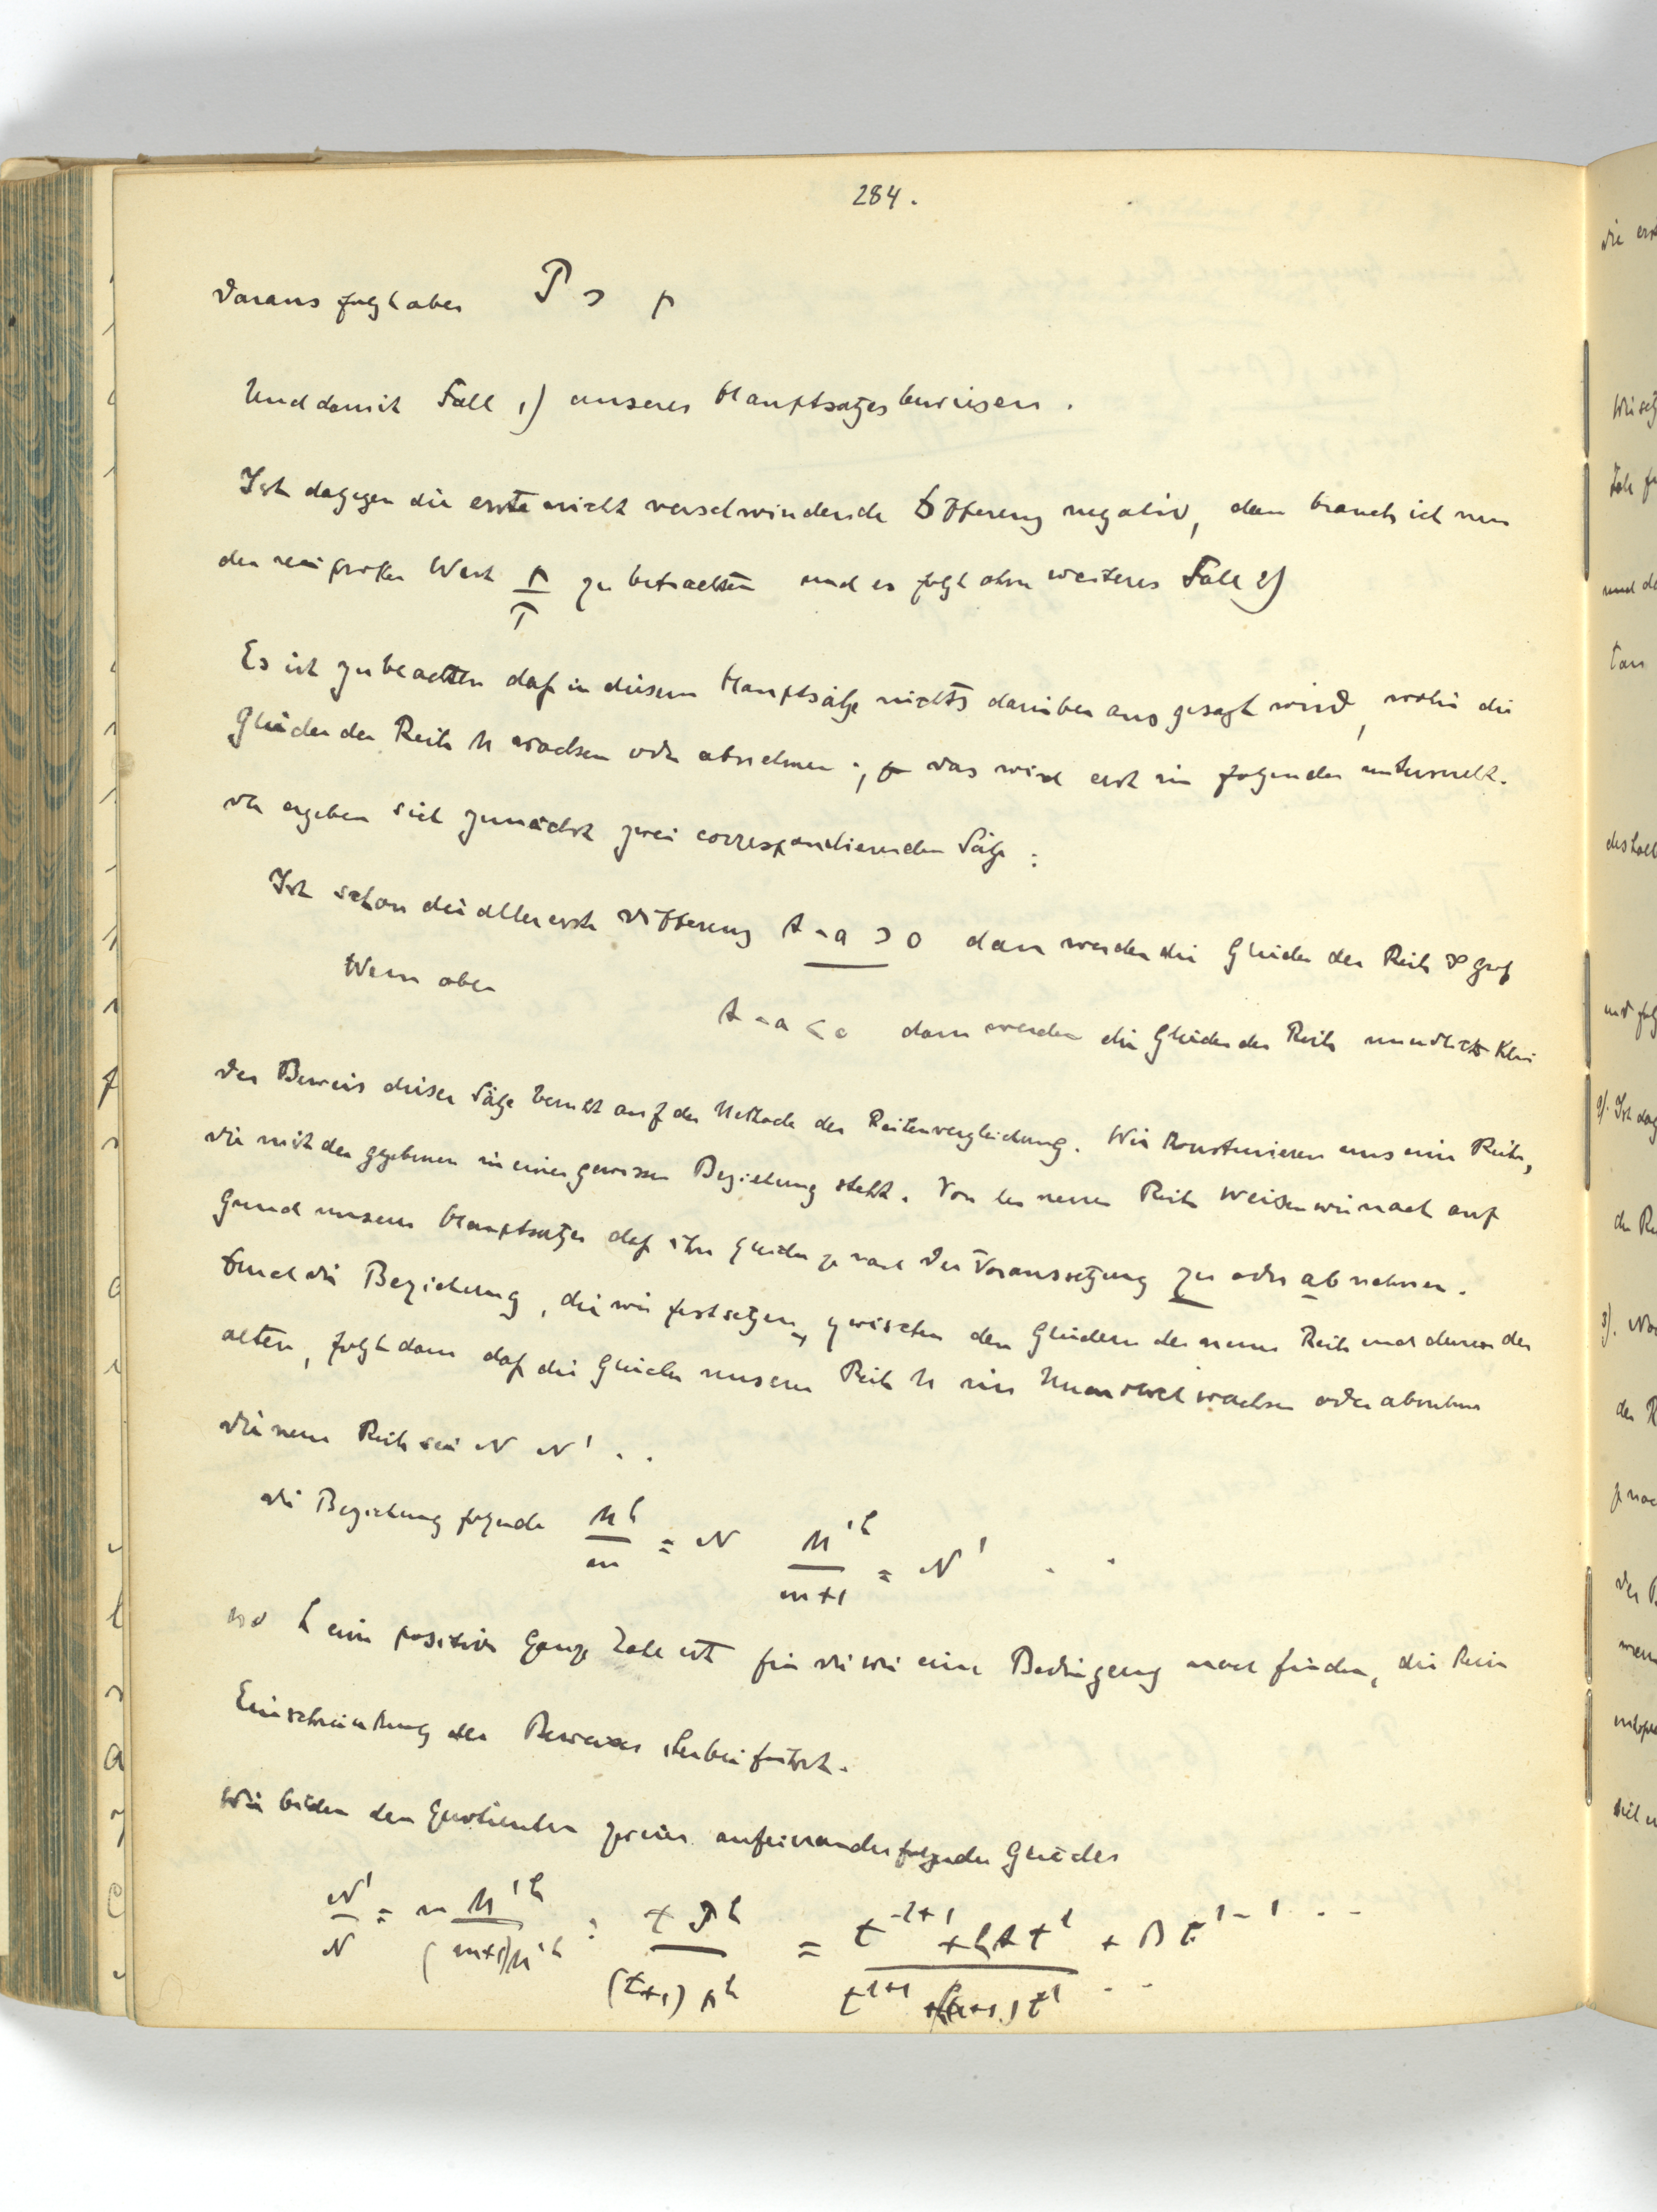 284.
Daraus folgt aber P > p
Und damit Fall 1) unseres Hauptsatzes bewiesen.
Ist dagegen die erste nicht verschwindende Differenz negativ, dann brauch ich nur
den reciproken Wert p/P zu betrachten und es folgt ohne weiteres Fall 2)
Es ist zu beachten daß in diesem Hauptsatze nichts darüber ausgesagt wird, wohin die
Glieder der Reihe M wachsen oder abnehmen; das wird erst im folgenden untersucht.
Da ergeben sich zunächst zwei correspondierenden Sätze:
Ist schon die allererste Differenz A-a > 0 dann werden die Glieder der Reihe ∞ groß
Wenn aber
A-a < 0 dann werden die Glieder der Reihe unendlich klein
Der Beweis dieser Sätze beruht auf der Methode der Reihenvergleichung. Wir konstruieren uns eine Reihe,
die mit der gegebenen in einer gewissen Beziehung steht. Von der neuen Reihe weisen wir nach auf
Grund unseres Hauptsatzes daß ihre Glieder je nach der Voraussetzung zu oder abnehmen.
Durch die Beziehung, die wir festsetzen, zwischen den Gliedern der neuen Reihe und denen der
alten, folgt dann daß die Glieder unserer Reihe M ins Unendlich wachsen oder abnehmen
Die neue Reihe sei N N' . .
die Beziehung folgende M^h/m = N M'^h/(m+1) = N' . .
wo h eine positive ganze Zahl ist für die wir eine Bedingung noch finden, die keine
Einschränkung des Beweises herbeiführt.
Wir bilden den Quotienten zweier aufeinanderfolgender Glieder
N'/N = m M'^h/((m+1)M^h) = t P^h/((t+1) p^h) = (t^{λ+1} + hAt^λ + Bt^{λ-1} . .)/(t^{λ+1} +(ha+1)t^λ . .)